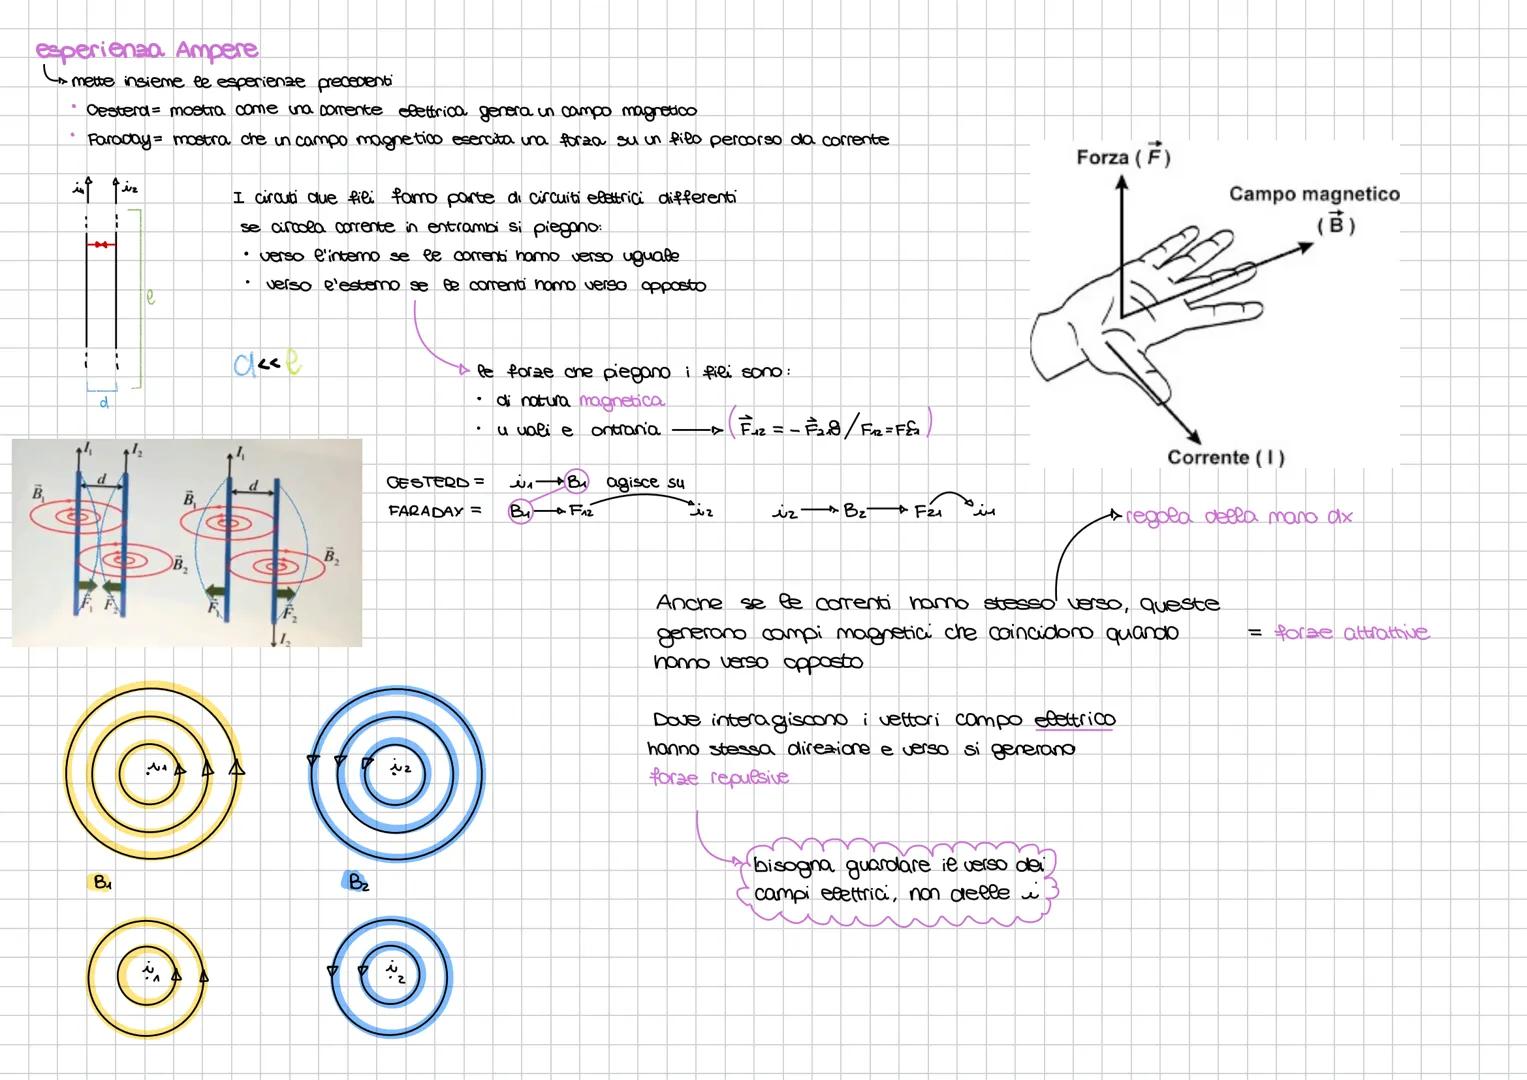 esperienza Ampere
mette insieme le esperienze precedenti
• Oesterd= mostra come una corrente elettrica genera un campo magnetico
• Faraday= mostra che un campo magnetico esercita una forza su un filo percorso da corrente
i₁ i₂
I circuti due fili fanno parte di circuiti elettrici differenti
se circola corrente in entrambi si piegano:
• verso l'interno se le correnti hanno verso uguale
• verso l'esterno se le correnti hanno verso opposto
l
d
d<<l
le forze che piegano i fili sono:
• di natura magnetica
• u uali e ontraria → (F⃗₁₂ = - F⃗₂ / F₁₂=F₂)
Forza ( F⃗ )
Campo magnetico
( B⃗ )
Corrente ( I )
I₁ I₂ d B⃗₁ B⃗₂ F⃗₁ F⃗₂
I₁ d B⃗₁ B⃗₂ F⃗₁ F⃗₂ I₂
OESTERD = i₁ → B₁ agisce su
FARADAY = B₁ → F₁₂ i₂ i₂ → B₂ → F₂₁ i₁
regola della mano dx
Anche se le correnti hanno stesso verso, queste
generano campi magnetici che coincidono quando = forze attrattive
hanno verso opposto
Dove interagiscono i vettori campo elettrico
hanno stessa direzione e verso si generano
forze repulsive
bisogna guardare il verso dei
campi elettrici, non delle i
i₁ i₂
B₁ B₂
i₁ i₂